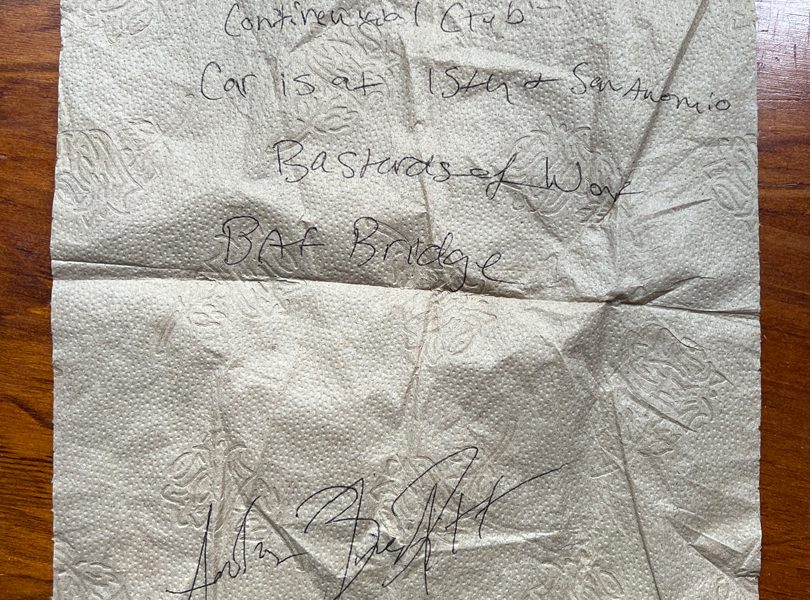 Continental Club
Car is at 15th + San Antonio
Bastards of War
BAt Bridge